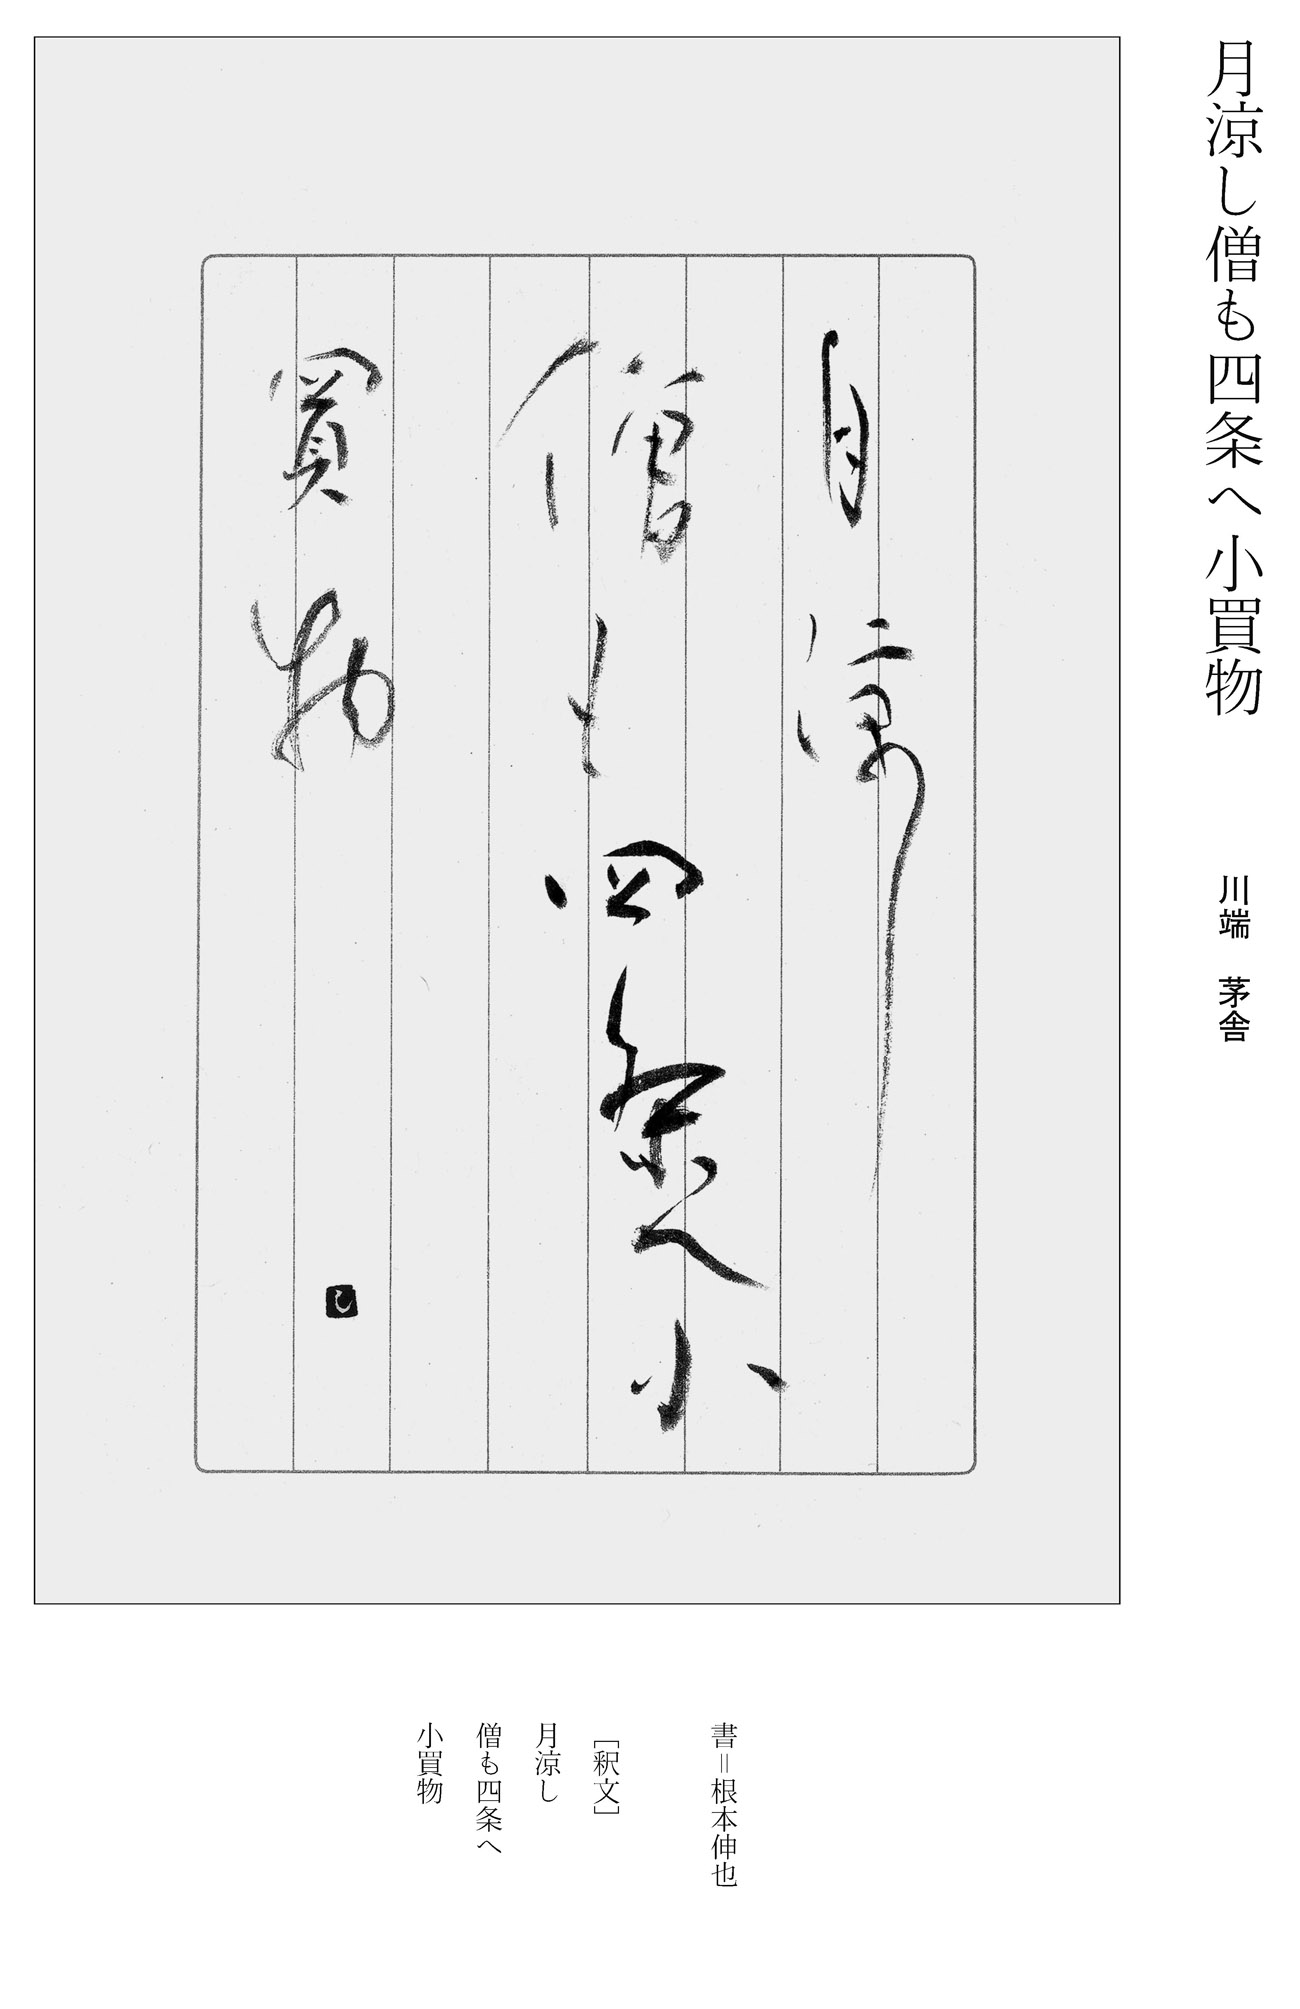 月涼し僧も四条へ小買物
川端 茅舎
月涼し
僧も四条へ小
買物
し
書=根本伸也
[釈文]
月涼し
僧も四条へ
小買物